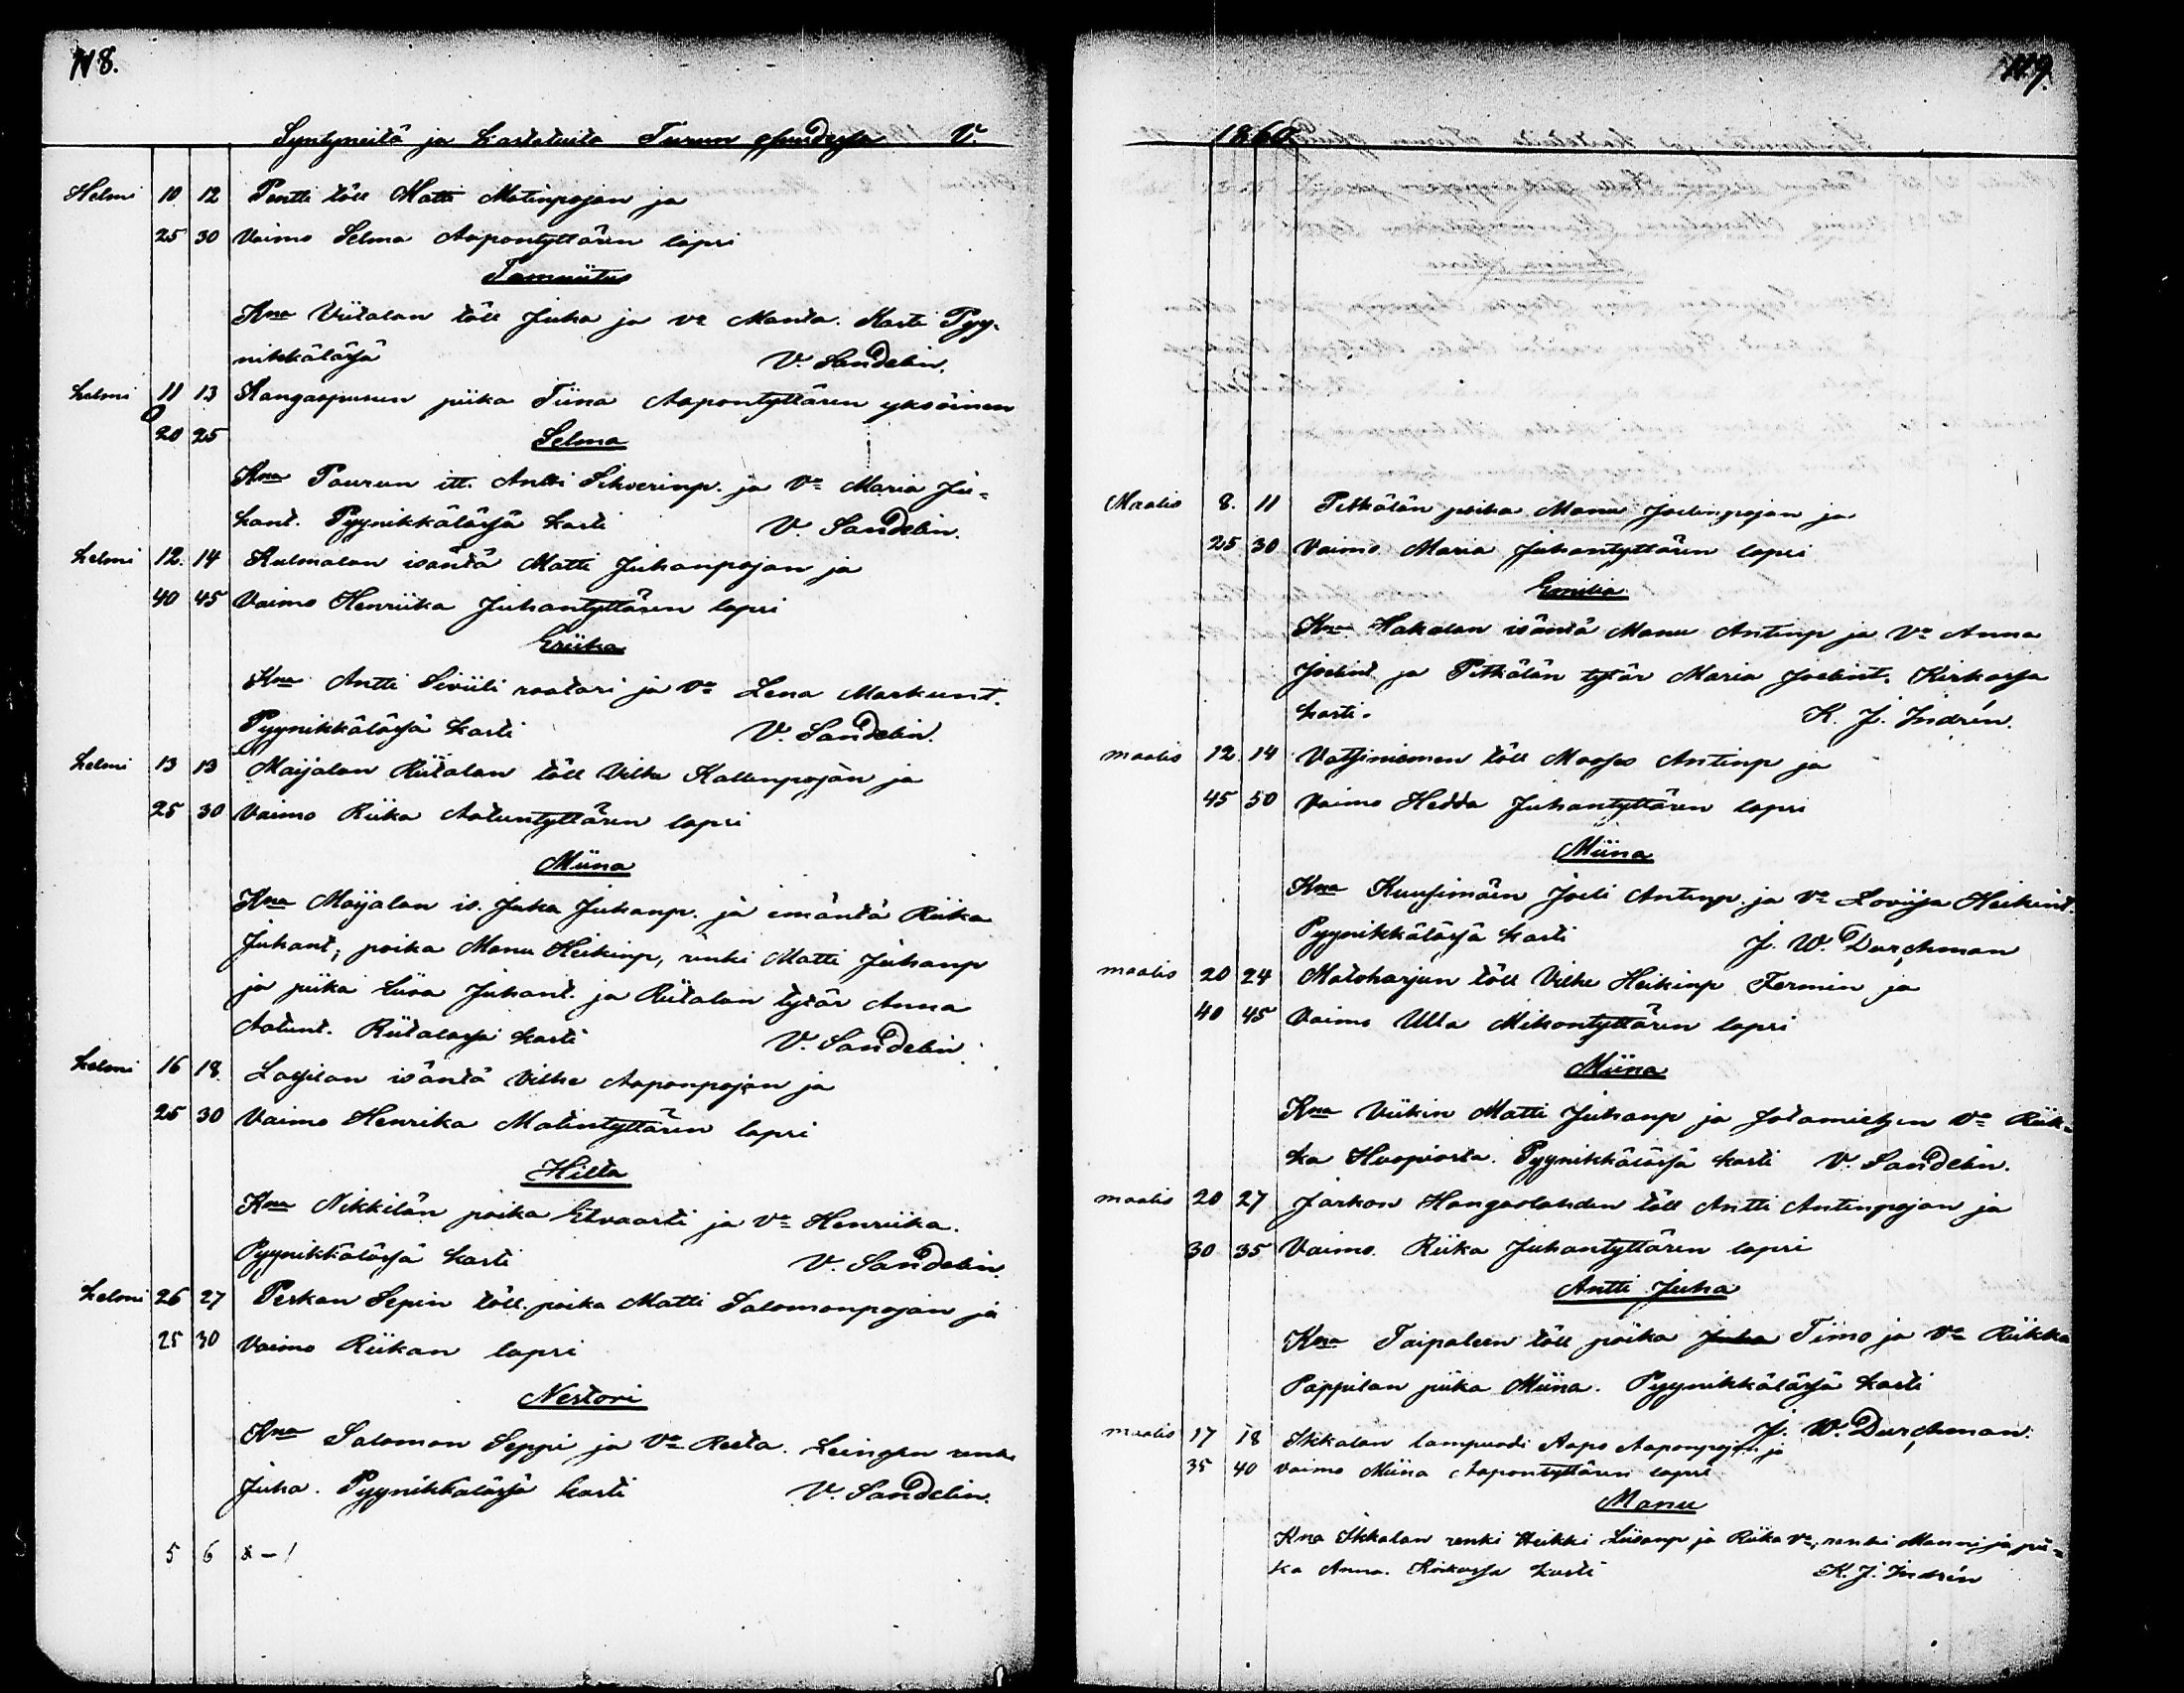 118.
Syntyneitä ja kastetuita Turun V.
Helmi 10 12 Pentti töll Matti Matinpojan ja
25 30 Vaimo Selma Aapontyttären lapsi
Kna Viitalan töll Juha ja va Manta. Kasti Pyy-
nikkälässä V. Sandelin.
helmi 11 13 Kangaspuron piika Tiina Aapontyttären yksöinen
20 25 Selma
Kna Paurun itt. Antti Sihverinp. ja Va Maria Ju-
hant. Pyynikkälässä kasti V. Sandelin.
helmi 12. 14 Kulmalan isäntä Matti Juhanpojan ja
40 45 Vaimo Henriika Juhantyttären lapsi
Eriika
Kna Antti Siviili raatari ja Va Lena Markunt.
Pyynikkälässä kasti V. Sandelin.
helmi 13 13 Maijalan Riitalan töll Vilhe Kallenpojan ja
25 30 Vaimo Riika Aatuntyttären lapsi
Miina
Kna Maijalan is. Juha Juhanp. ja emäntä Riika
Juhant, poika Manu Heikinp, renki Matti Juhanp
ja piika Liisa Juhant. ja Riitalan tytär Anna
Aatunt. Riitalassa kasti V. Sandelin.
helmi 16 18. Lassilan isäntä Vilhe Aaponpojan ja
25 30 Vaimo Henrika Matintyttären lapsi
Hilta
Kna Nikkilän poika Etvaarti ja Va Henriika.
Pyynikkälässä kasti V. Sandelin.
helmi 26 27 Perkon Sepin töll. poika Matti Salomonpojan ja
25 30 Vaimo Riikan lapsi
Nestori
Kna Salomon Seppi ja Va Reeta. Leingen renki
Juha. Pyynikkälässä kasti V. Sandelin.
5 6
119.
1860.
Maalis 8. 11 Pitkälän poika Manu Joelinpojan ja
25 30 Vaimo Maria Juhantyttären lapsi
Emilia
Kna Hakalan isäntä Manu Antinp ja Va Anna
Joelint ja Pitkälän tytär Maria Joelint. Kirkossa
kasti. K. J. Indrén.
maalis 12 14 Vatsiniemen töll Mooses Antinp ja
45 50 Vaimo Hedda Juhantyttären lapsi
Miina
Kna Kuusimäen Joeli Antinp. ja Va Loviisa Heikint.
Pyynikkälässä kasti J. W. Durchman
maalis 20 24 Matoharjun töll Vilhe Heikinp Fermin ja
40 45 Vaimo Ulla Mikontyttären lapsi
Miina
Kna Viikin Matti Juhanp ja Sotamiehen Va Riik-
ka Huopiosta. Pyynikkälässä kasti V. Sandelin.
maalis 20 27 Jarkon Hangaslahden töll Antti Antinpojan ja
30 35 Vaimo. Riika Juhantyttären lapsi
Antti Juha
Kna Taipaleen töll poika Juha Timo ja Va Riikka
Pappilan piika Miina. Pyynikkälässä kasti
J. W. Durchman.
maalis 17 18 Ikkalan lampuodi Aapo Aaponpojan ja
35 40 vaimo Miina Aapontyttären lapsi
Manu
Kna Ikkalan renki Heikki Liisanp ja Riika Va, renki Manni ja pii-
ka Anna. Kirkossa kasti K. J. Indrén